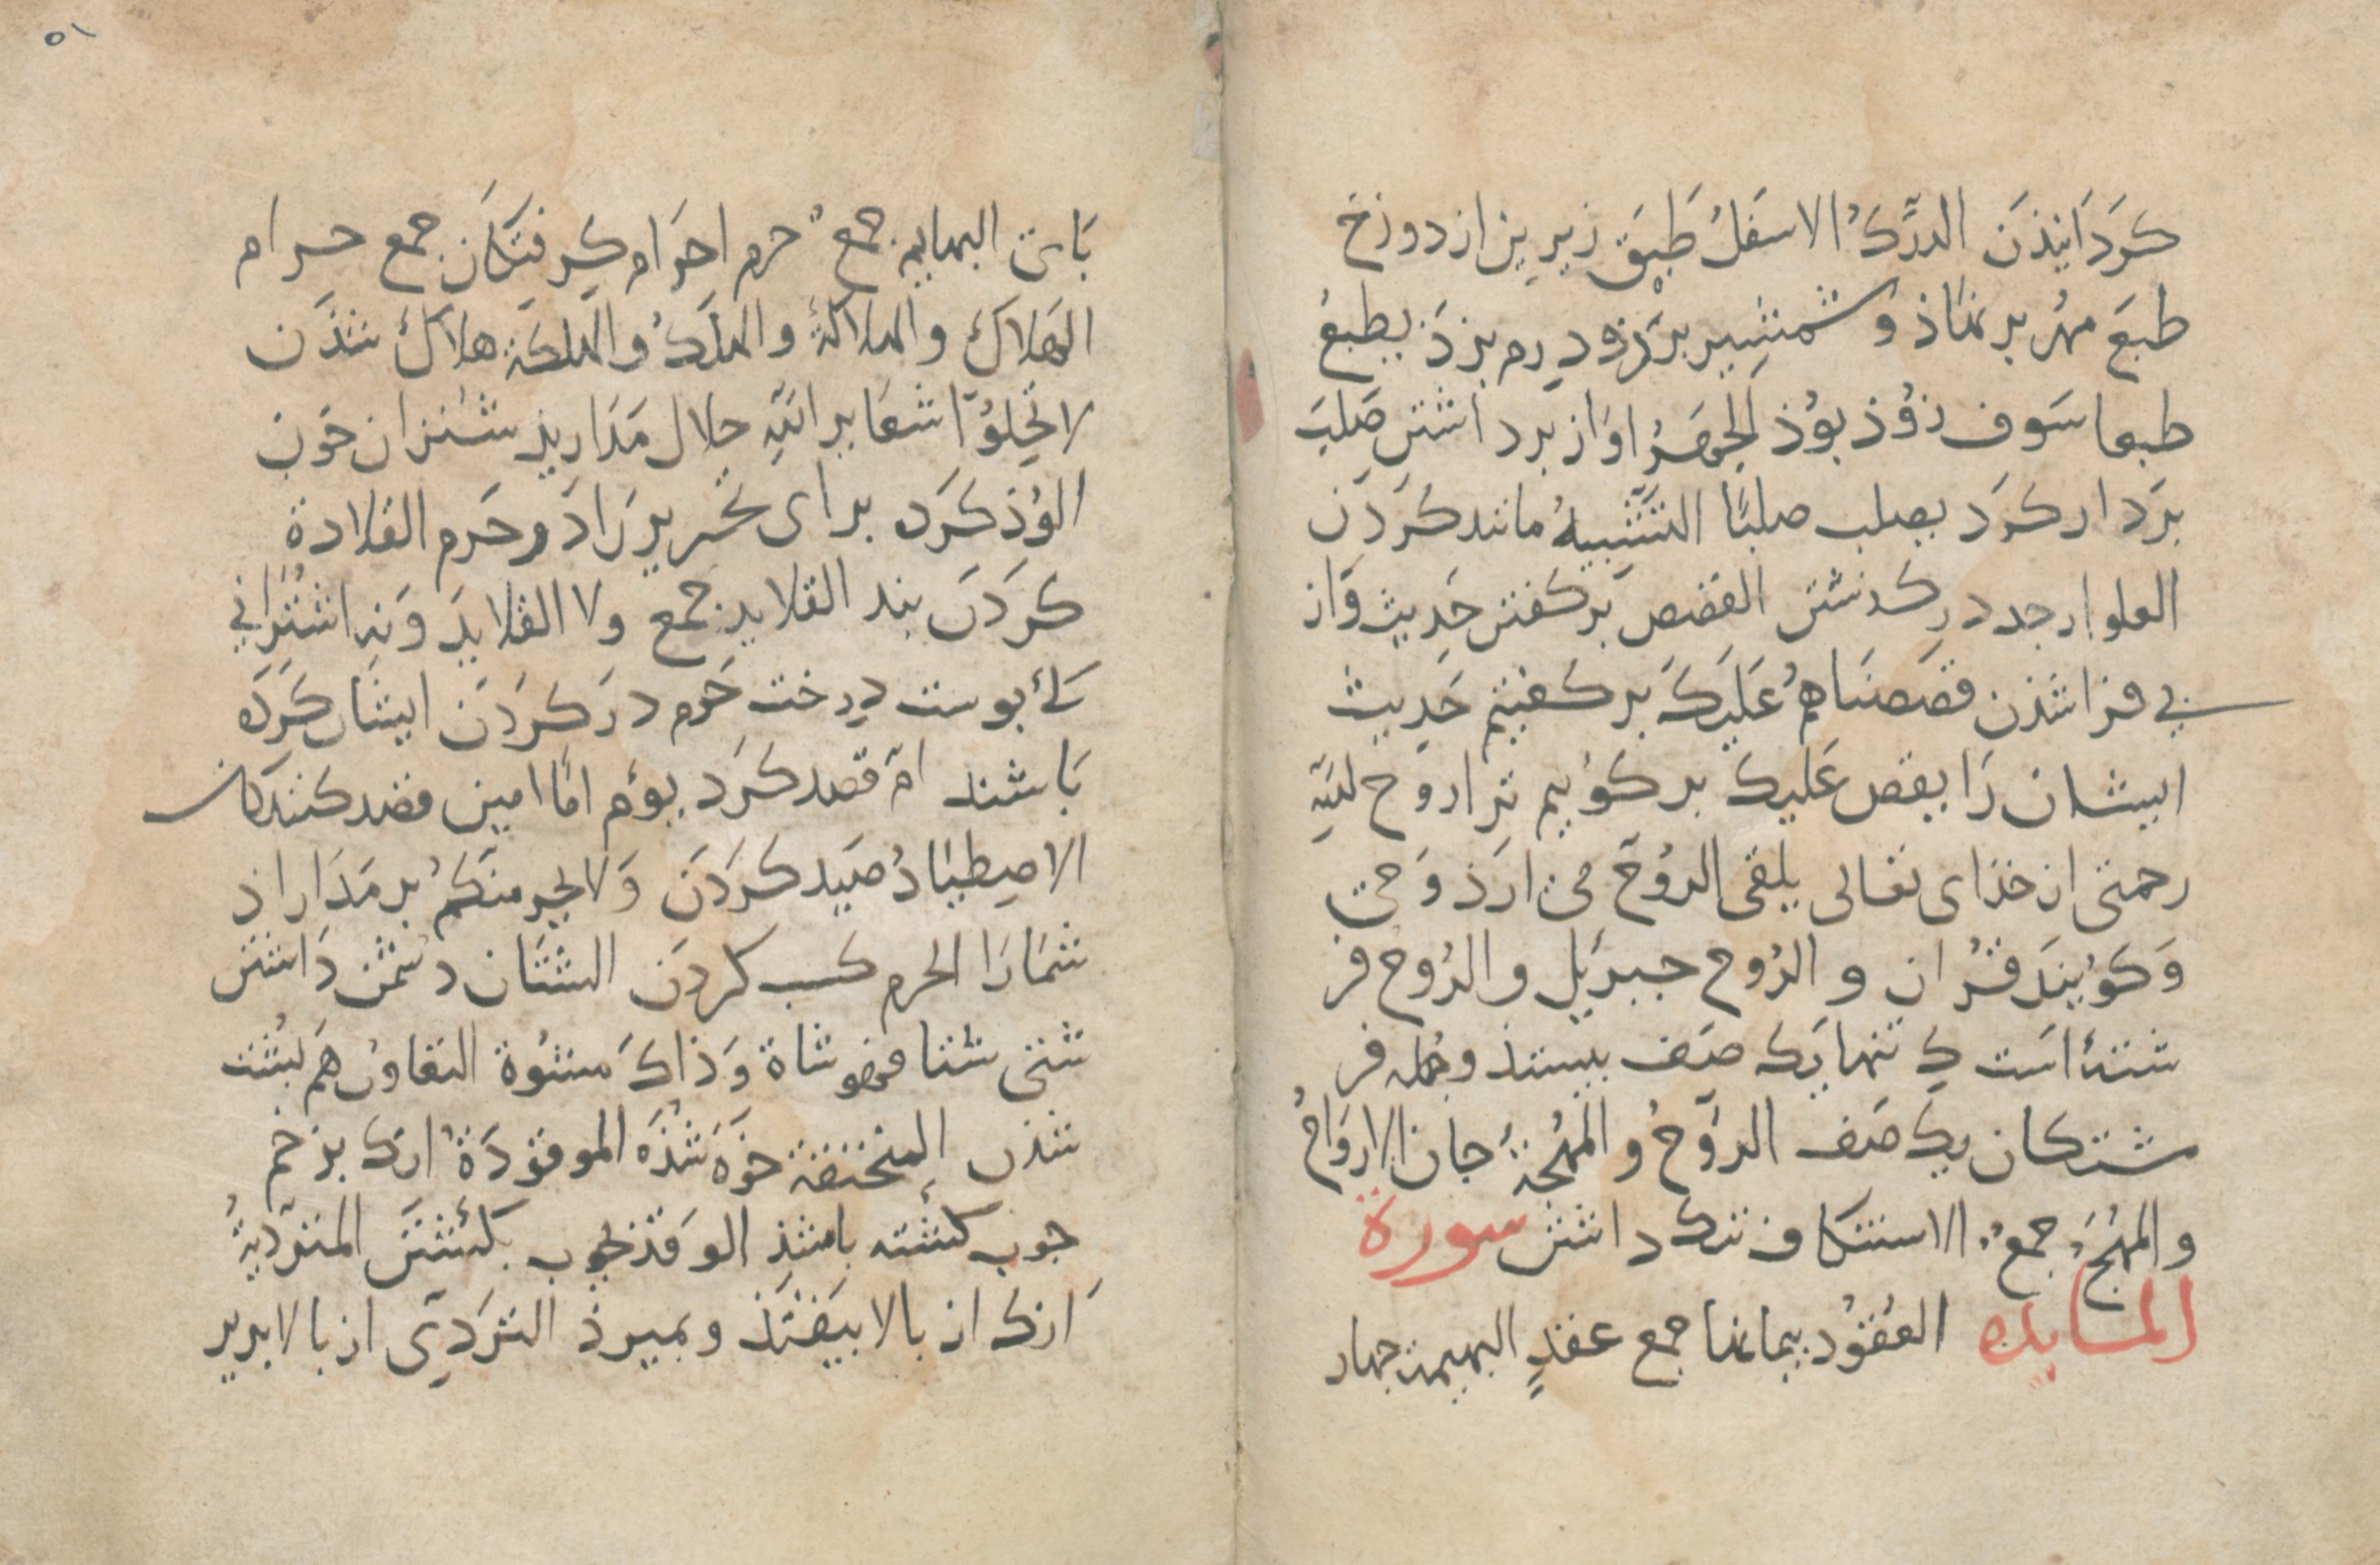 كَردَانيذن الدَّركُ الاسفلُ طَبَقِ زيرين از دوزخ
طبعَ مهُر بر نهاذ وُ شمشير بزد و درم بزدَ يطبعُ
طبعا سَوف زوُذ بوُذ الجهَرُ اوَاز برداشتن صَلبَ
بَردار كرَد يصلب صلبًا التشبيهُ مانند كُردَن
العلو از حد در كدشتن القصَص بَر كفتن حَديث وَاز
پي فرا شذن قصَصنَاهمُ عَليَكَ بَر كفتيم حَديث
ايشان رَا يقص عَليك بر كوُييم ترا روح لله
رحمتى از خذاى تعالى يلقى الروُحَ مى ارَذ وَحى
وَكوُينَد قُران و الرُوح جبريَل و الرُوح فر
شتهٔ اسَت كِ تنها يَك صَف بيستذ وجمله فر
شتكان يك صَف الروَحُ و المهُجةُ جان الاروَاحُ
و المهُجَ جمعُ الاستنكاف ننك داشتن سورة
المايده العقوُد پيمانها جمع عقدٍ البهيمة جهار
پَاى البهايم جمعُ حرم احرَام كِرفتكَان جمع حرام
الهَلاك والهلاكةُ والهلَكُ والهلكة هلاك شذَن
لا تحِلوُا شعَاير اللهِ حلال مَدَاريذ شتران خَون
الوُذ كرَد براى نحر يرَا دَر حَرم القلادة
كَردَن بند القلايد جمع ولا القلايدَ وَنه اشتُرانِي
كهٔ بوست درخت حَرم در كردَن ايشان كَردَه
بَاشند امّ قصد كرَد يؤم امّا امين قصد كنندكان
الاصِطيَادُ صَيد كرَدَن وَلا يجرمنكمُ بر مَدَاراذ
شمَارَا الجرم كسب كردَن الشنَان دشمن دَاشتن
شنى شنا فهو شاة وَذاكَ مشنوُة التعاوُن هَم پُشت
شذن المنخنقة خوَه شُذَه الموقوُذَةُ انك بزخم
جوب كُشته باشذ الوقذ بجوب بكُشتَن المترديةُ
اَنك از بالا بيَفتَذ و بميرذ الترَدِى از بالا بزير